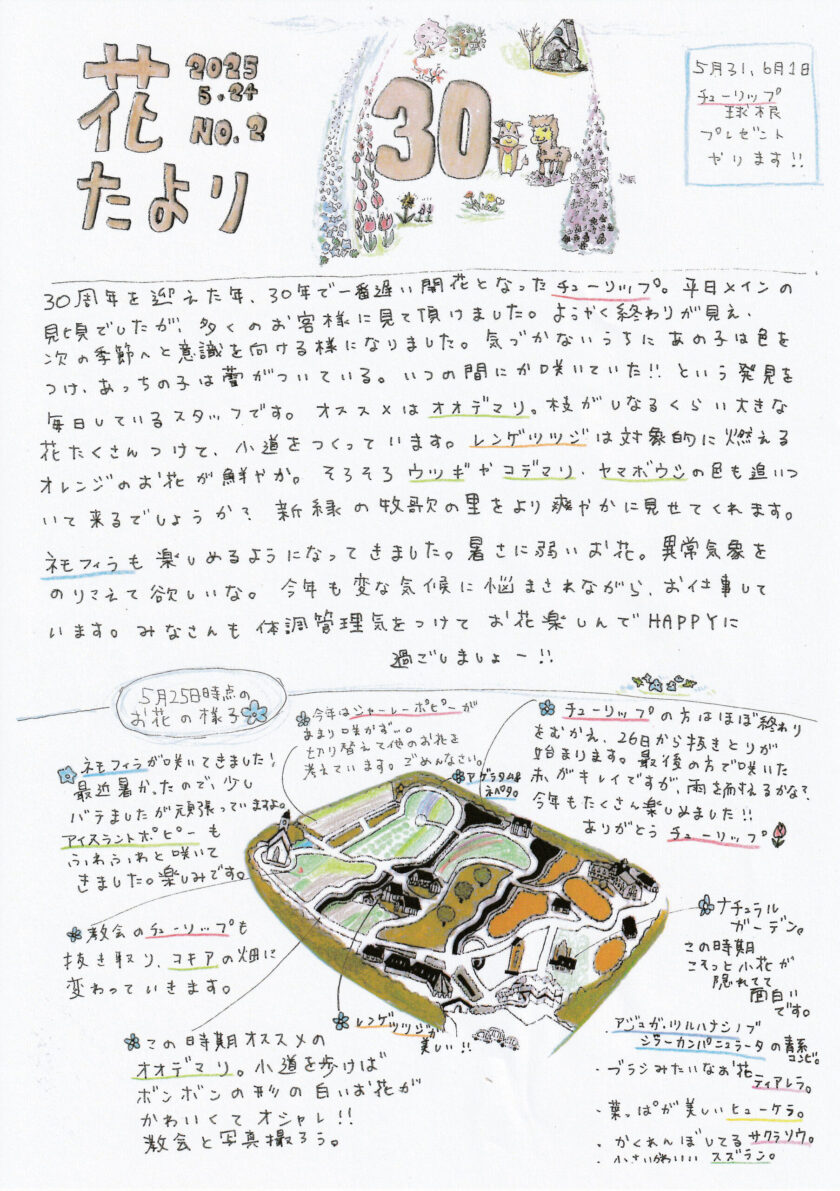 花
たより
2025
5.24
NO.2
30
5月31、6月1日
チューリップ
球根
プレゼント
やります!!
30周年を迎えた年、30年で一番遅い開花となったチューリップ。平日メインの
見頃でしたが、多くのお客様に見て頂けました。ようやく終わりが見え、
次の季節へと意識を向ける様になりました。気づかないうちにあの子は色を
つけ、あっちの子は蕾がついている。いつの間にか咲いていた!!という発見を
毎日しているスタッフです。オススメはオオデマリ。枝がしなるくらい大きな
花たくさんつけて、小道をつくっています。レンゲツツジは対象的に燃える
オレンジのお花が鮮やか。そろそろウツギやコデマリ、ヤマボウシの色も追いつ
いて来るでしょうか?新緑の牧歌の里をより爽やかに見せてくれます。
ネモフィラも楽しめるようになってきました。暑さに弱いお花。異常気象を
のりこえて欲しいな。今年も変な気候に悩まされながら、お仕事して
います。みなさんも体調管理気をつけてお花楽しんでHAPPYに
過ごしましょー!!
5月25日時点の
お花の様子
今年はシャーレーポピーが
あまり咲かず…。
切り替えて他のお花を
考えています。ごめんなさい。
チューリップの方はほぼ終わり
をむかえ、26日から抜きとりが
始まります。最後の方で咲いた
ホがキレイですが、雨を耐えるかな?
今年もたくさん楽しめました!!
ありがとうチューリップ
ネモフィラが咲いてきました!
最近暑かったので、少し
バテましたが頑張っていますよ。
アイスランドポピーも
ふわふわと咲いて
きました。楽しみです。
アゲラタム&
ネペタ。
教会のチューリップも
抜き取り、コキアの畑に
変わっていきます。
ナチュラル
ガーデン。
この時期
こそっと小花が
隠れてて
面白い
です。
レンゲツツジが
美しい!!
この時期オススメの
オオデマリ。小道を歩けば
ボンボンの形の白いお花が
かわいくてオシャレ!!
教会と写真撮ろう。
・アジュガ、ツルハナシノブ
シラーカンパニュラータの青系
コンビ。
・ブラシみたいなお花
ティアレラ。
・葉っぱが美しいヒューケラ。
・かくれんぼしてるサクラソウ。
・小さいかわいいスズラン。